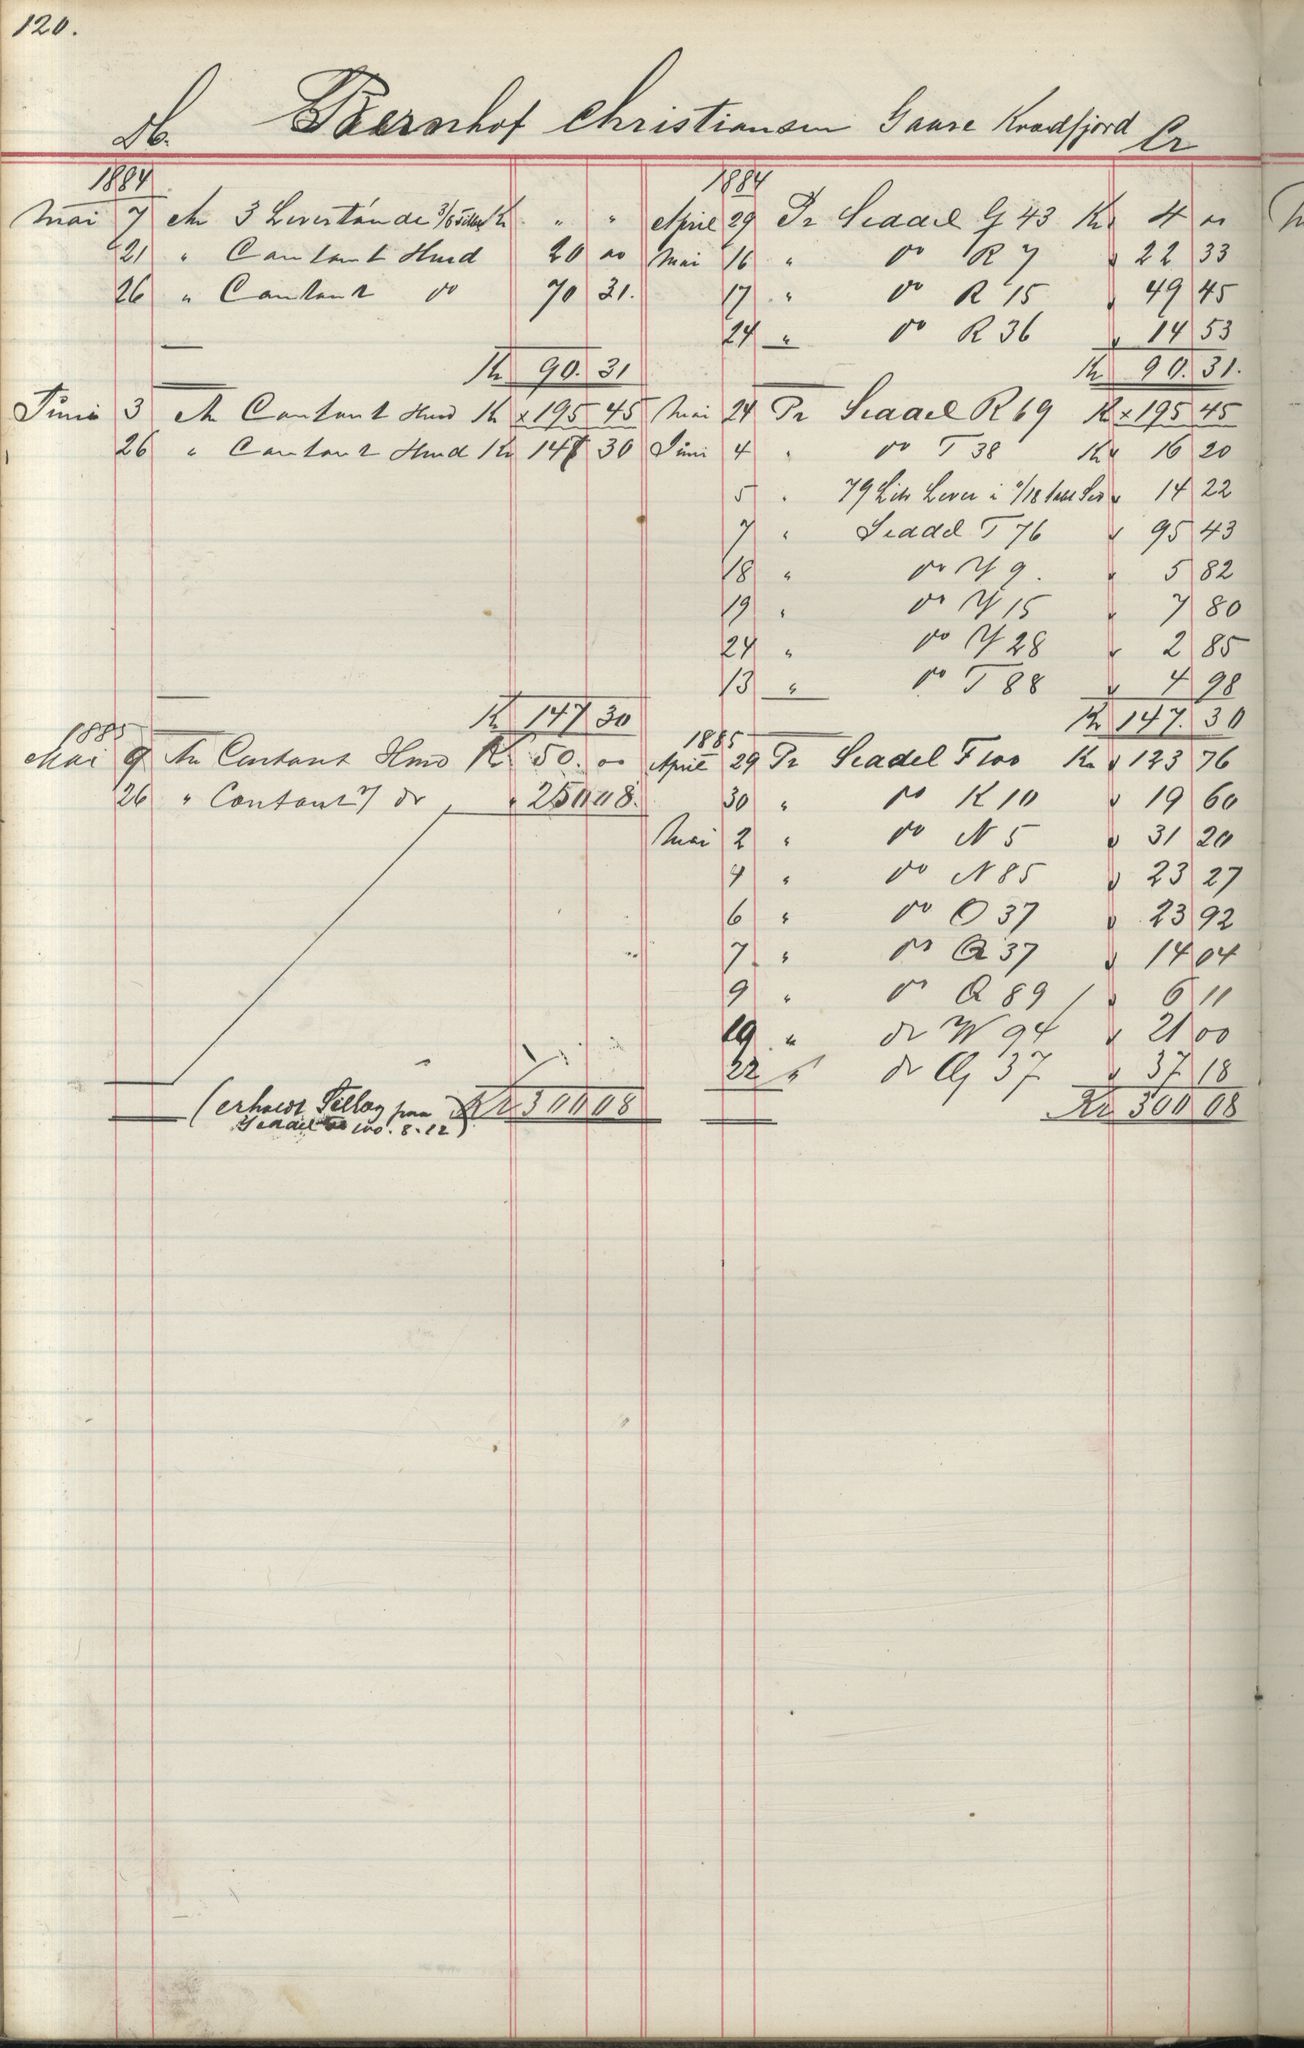 120.
Db. Bernhof Christiansen Gaare Kvædfjord Cr
1884 1884
Mai 7 An 3 Leverstände Kr " " April 29 Pr Seddel G 43 Kr 4 00
21 " Contant Hmd 20 00 Mai 16 " do R 7 " 22 33
26 " Contant do 70 31. 17 " do R 15 " 49 45
24 " do R 36 " 14 53
Kr 90. 31 Kr 90. 31.
Juni 3 An Contant Hmd Kr x 195 45 Mai 24 Pr Seddel R 69 K x 195 45
26 " Contant Hmd Kr 147 30 Juni 4 " do T 38 Kr 16 20
5 " 79 Lit Lever " 14 22
7 " Seddel T 76 " 95 43
18 " do Y 9. " 5 82
19 " do Y 15 " 7 80
24 " do Y 28 " 2 85
13 " do T 88 " 4 98
Kr 147 30 Kr 147. 30
1885 1885
Mai 9 An Contant Hmd Kr 50. 00 April 29 Pr Seddel F 100 Kr " 123 76
26 " Contant do " 250 08. 30 " do K 10 " 19 60
Mai 2 " do N 5 " 31 20
4 " do N 85 " 23 27
6 " do O 37 " 23 92
7 " do Q 37 " 14 04
9 " do Q 89 " 6 11
19 " do W 94 " 21 00
22 " do 37 " 37 18
(erholdt Tillæg paa Kr 300 08 Kr 300 08
Seddel 100. 8.12)